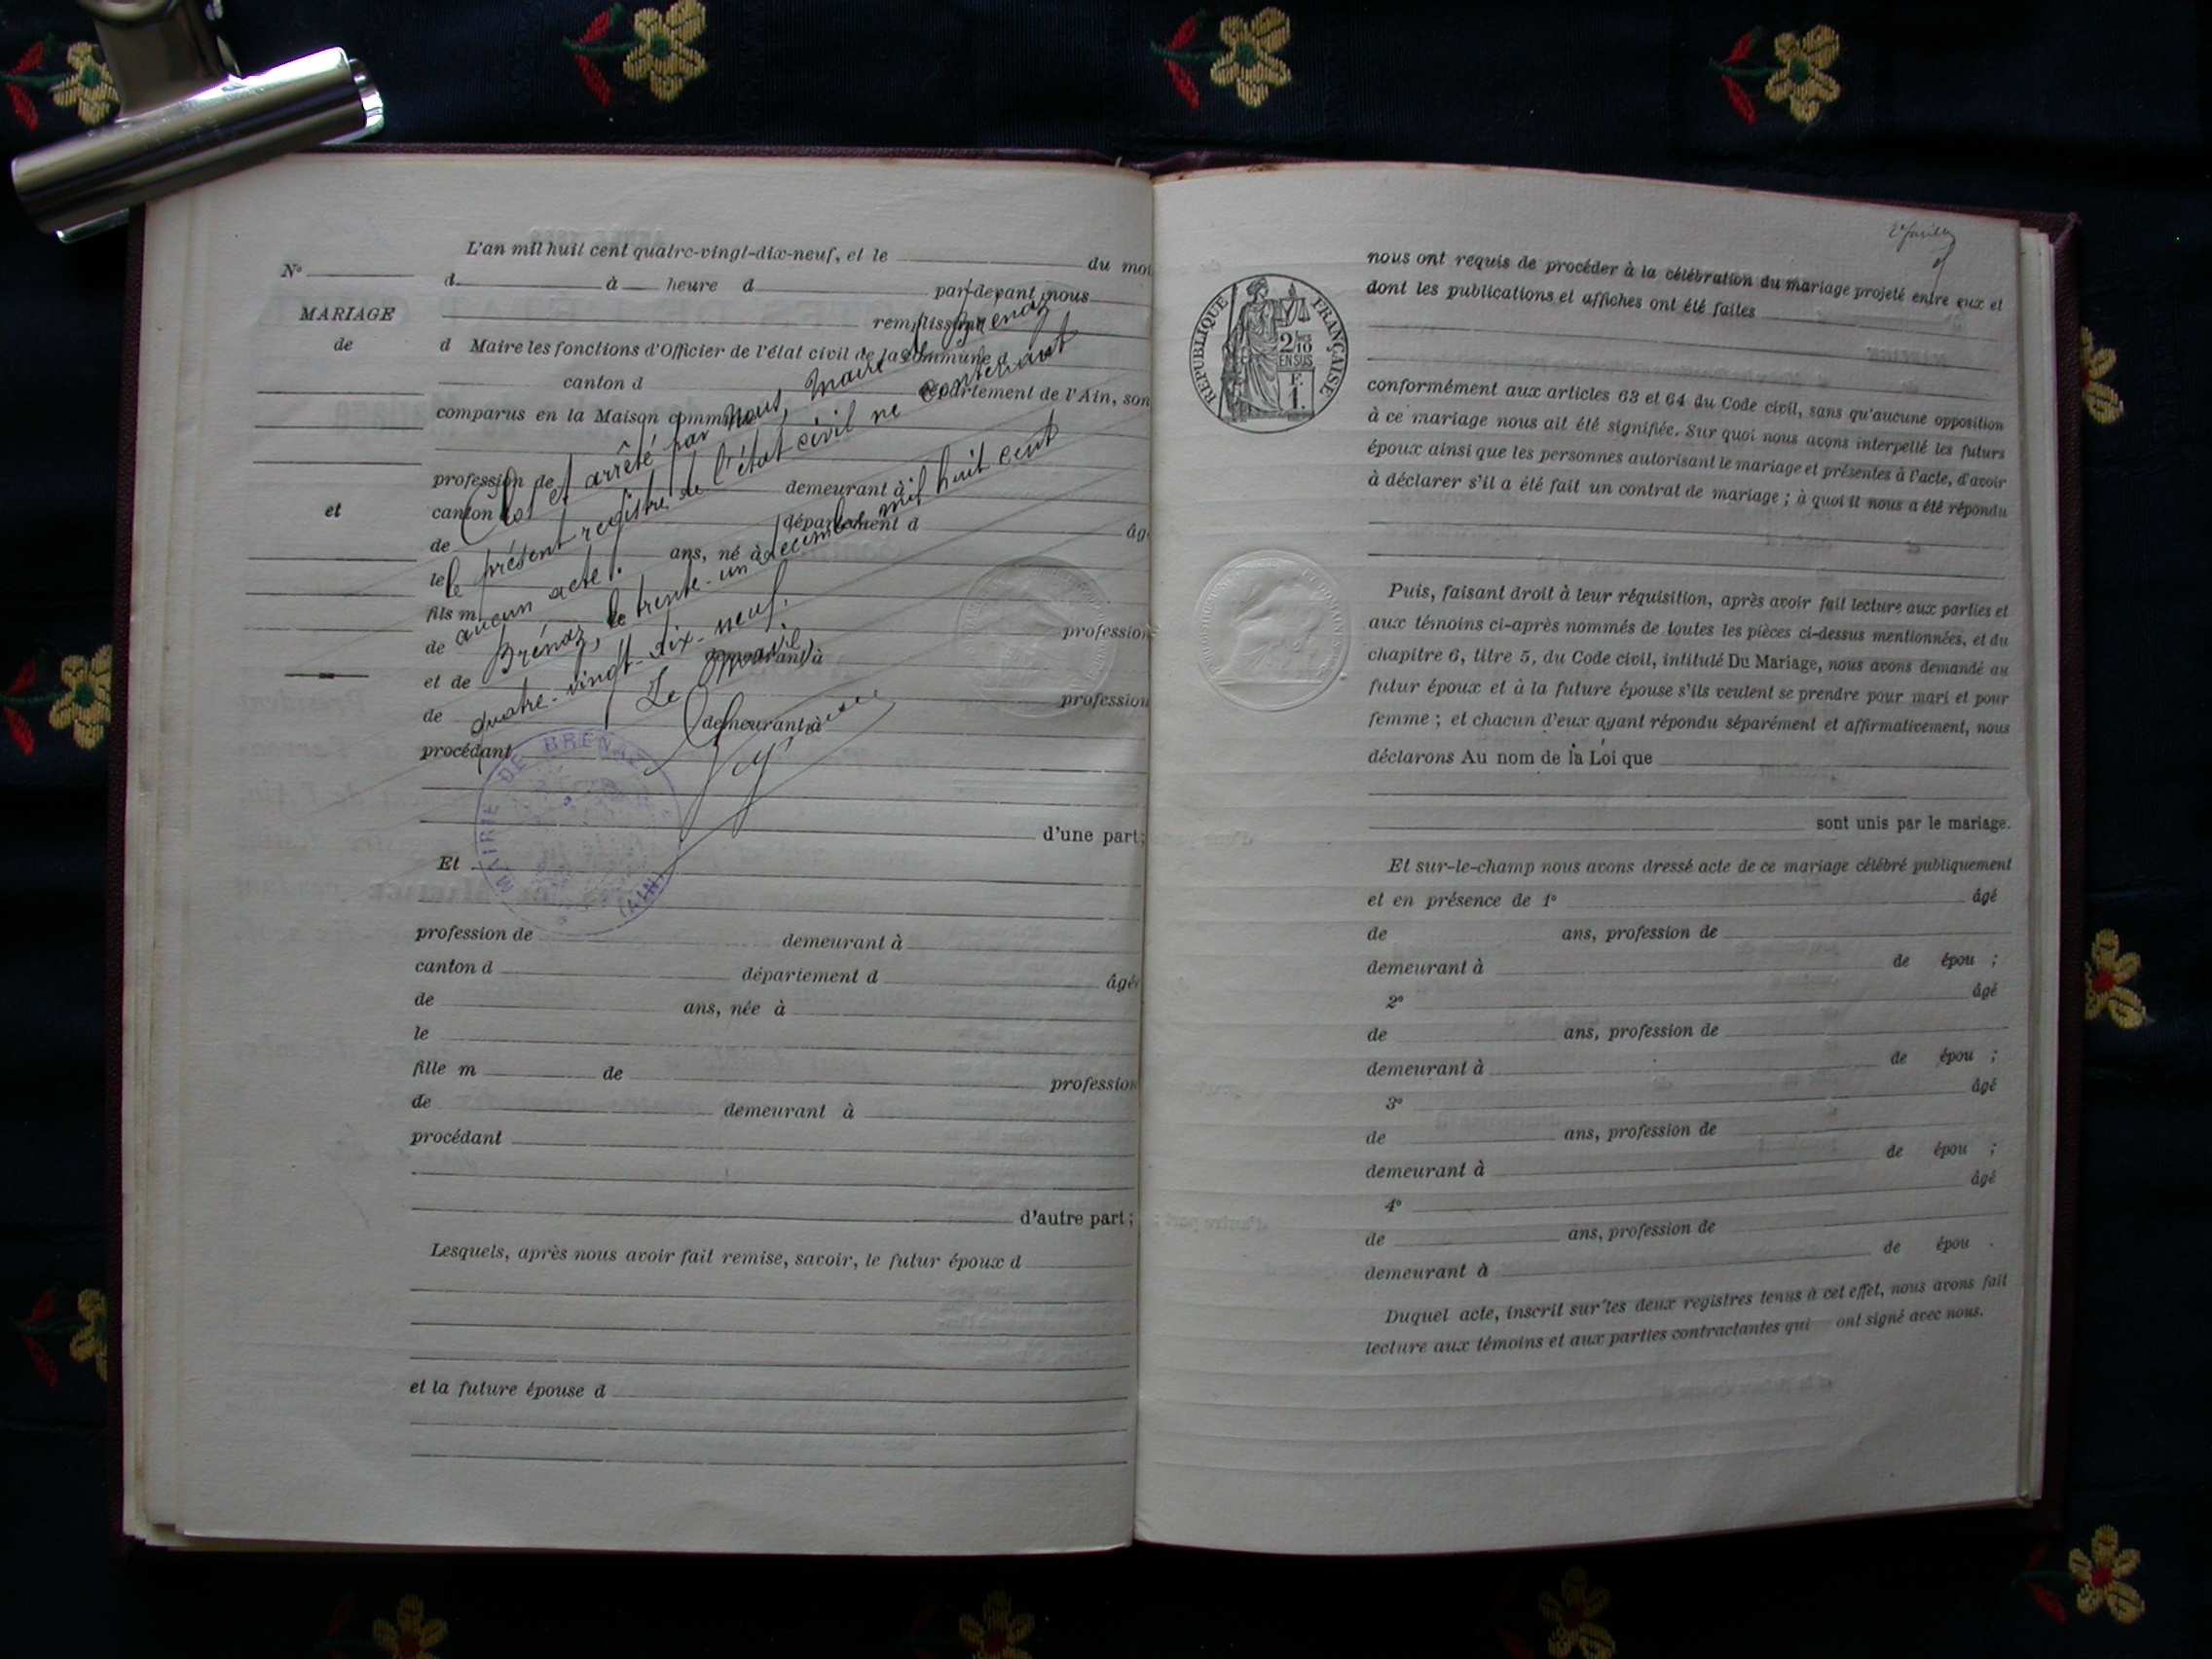 L'an mil huit cent quatre-vingt-dix-neuf, et le du moi
N° d à heure d par-devant nous
MARIAGE
remplissant
de
d Maire les fonctions d'Officier de l'état civil de la commune d
canton d département de l'Ain, son
comparus en la Maison commune
profession de demeurant à
et
canton d département d âg
de ans, né à
le
fils m
de profession
demeurant à
et de
de profession
demeurant à
procédant
d'une part;
Et
profession de demeurant à
canton d département d âgé
de ans, née à
le
fille m de profession
de demeurant à
procédant
d'autre part;
Lesquels, après nous avoir fait remise, savoir, le futur époux d
et la future épouse d
Clos et arrêté par nous, Maire de Brénaz
le présent registre de l'état civil ne contenant
aucun acte.
Brénaz, le trente-un décembre mil huit cent
quatre-vingt-dix-neuf.
Le Maire,
MAIRIE DE BRENAZ
(AIN)
2e feuillet
nous ont requis de procéder à la célébration du mariage projeté entre eux et
dont les publications et affiches ont été faites
REPUBLIQUE FRANÇAISE
2/10
EN SUS
F.
1.
conformément aux articles 63 et 64 du Code civil, sans qu'aucune opposition
à ce mariage nous ait été signifiée. Sur quoi nous avons interpellé les futurs
époux ainsi que les personnes autorisant le mariage et présentes à l'acte, d'avoir
à déclarer s'il a été fait un contrat de mariage; à quoi il nous a été répondu
Puis, faisant droit à leur réquisition, après avoir fait lecture aux parties et
aux témoins ci-après nommés de toutes les pièces ci-dessus mentionnées, et du
chapitre 6, titre 5, du Code civil, intitulé Du Mariage, nous avons demandé au
futur époux et à la future épouse s'ils veulent se prendre pour mari et pour
femme; et chacun d'eux ayant répondu séparément et affirmativement, nous
déclarons Au nom de la Loi que
sont unis par le mariage.
Et sur-le-champ nous avons dressé acte de ce mariage célébré publiquement
et en présence de 1° âgé
de ans, profession de
demeurant à de épou ;
2° âgé
de ans, profession de
demeurant à de épou ;
3° âgé
de ans, profession de
demeurant à de épou ;
4° âgé
de ans, profession de
demeurant à de épou .
Duquel acte, inscrit sur les deux registres tenus à cet effet, nous avons fait
lecture aux témoins et aux parties contractantes qui ont signé avec nous.